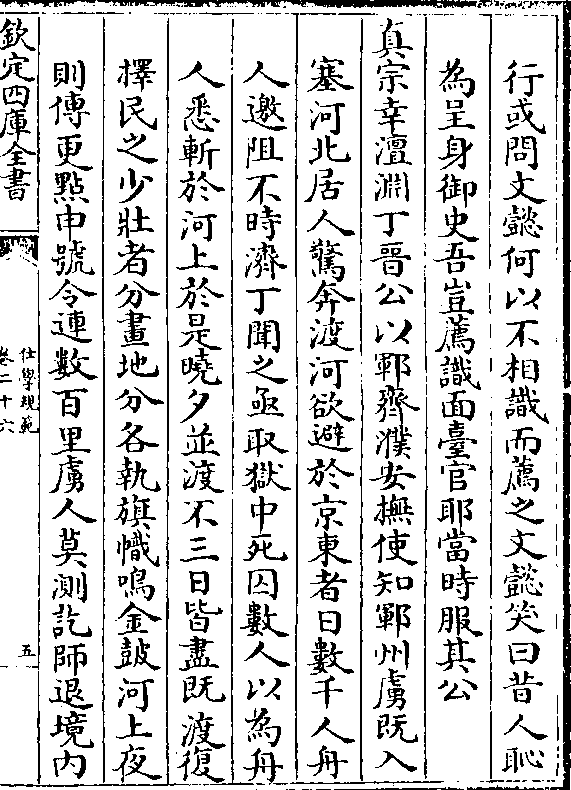 行或問文懿何以不相識而薦之文懿笑曰昔人恥
為呈身御史吾豈薦識面臺官耶當時服其公
真宗幸澶淵丁晉公以鄆齊濮安撫使知鄆州虜既入
塞河北居人驚奔渡河欲避於京東者日數千人舟
人邀阻不時濟丁聞之亟取獄中死囚數人以為舟
人悉斬於河上於是曉夕並渡不三日皆盡既渡復
擇民之少壯者分畫地分各執旗幟鳴金鼓河上夜
則傳更點申號令連數百里虜人莫測訖師退境内
欽定四庫全書
仕學規範
卷二十六
五